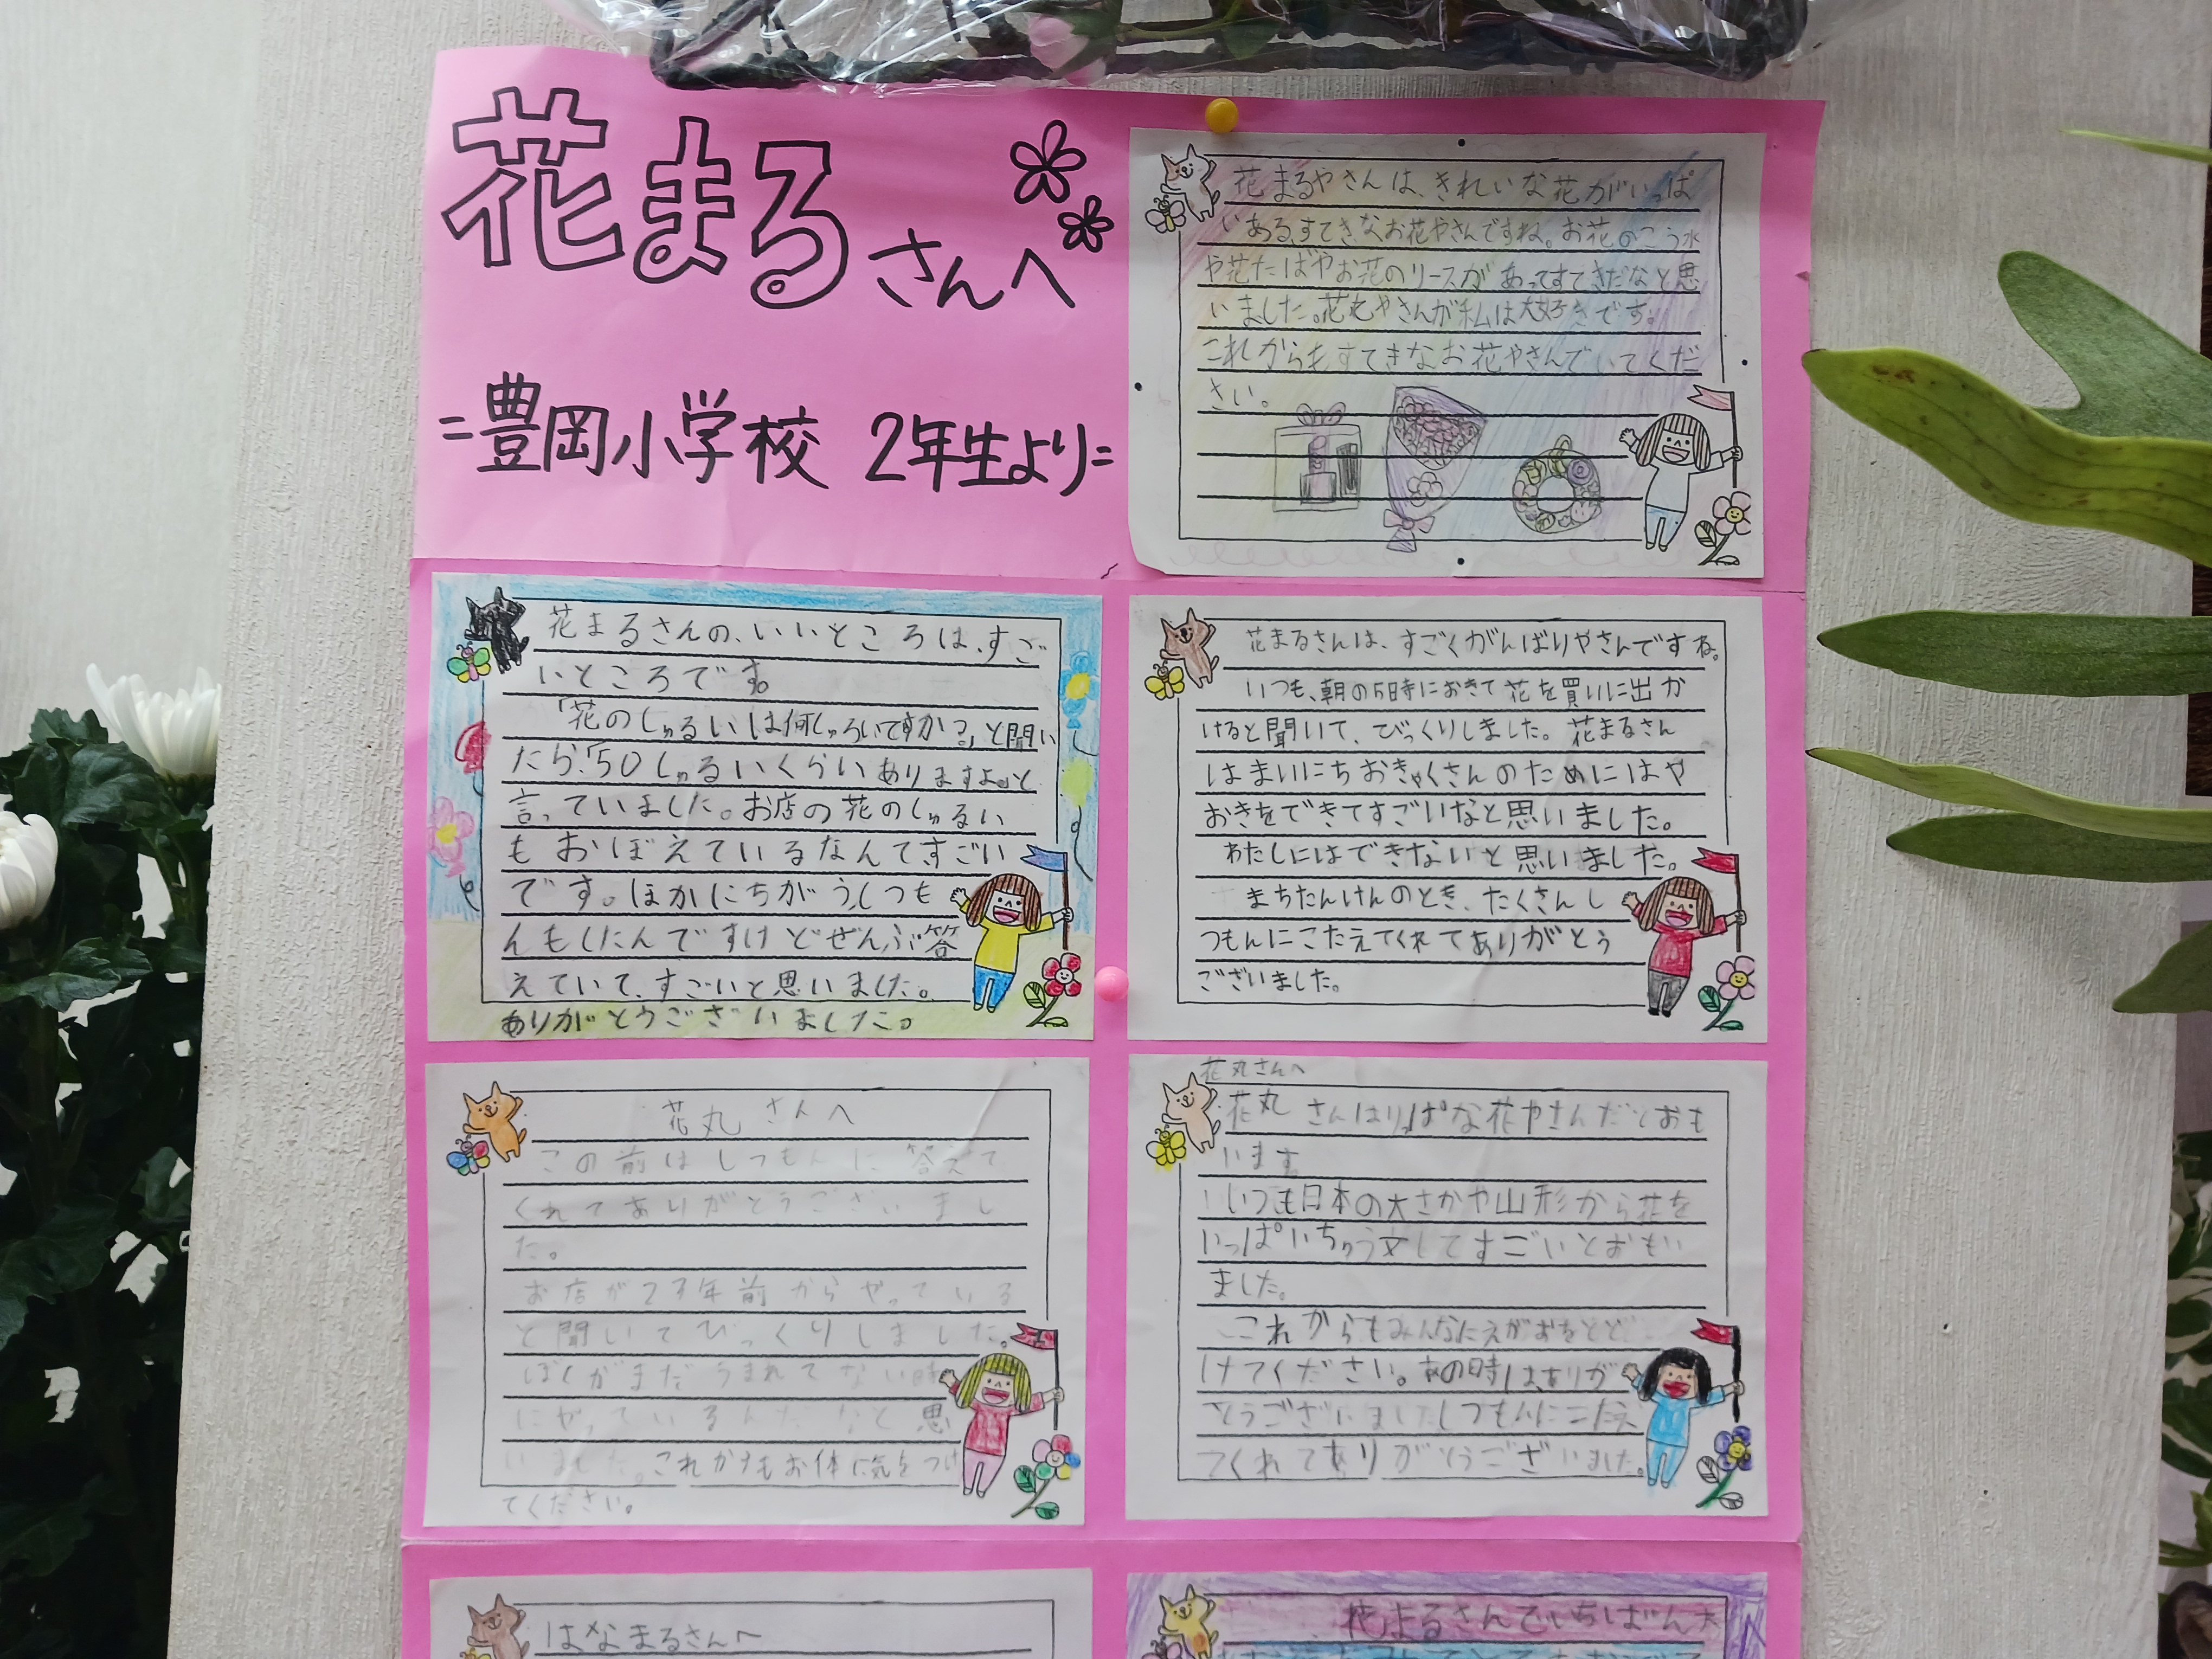 花まるさんへ
=豊岡小学校 2年生より=
花まるやさんは、きれいな花がいっぱ
いある、すてきなお花やさんですね。お花のこう水
や花たばやお花のリースがあってすてきだなと思
いました。花丸やさんが私は大好きです。
これからもすてきなお花やさんでいてくだ
さい。
花まるさんの、いいところは、すご
いところです。
「花のしゅるいは何しゅるいですか?」と聞い
たら、「50しゅるいくらいありますよ。」と
言っていました。お店の花のしゅるい
もおぼえているなんてすごい
です。ほかにちがう、しつも
んもしたんですけどぜんぶ答
えていて、すごいと思いました。
ありがとうございました。
花まるさんは、すごくがんばりやさんですね。
いつも、朝の5時におきて花を買いに出か
けると聞いて、びっくりしました。花まるさん
はまいにちおきゃくさんのためにはや
おきをできてすごいなと思いました。
わたしにはできないと思いました。
まちたんけんのとき、たくさんし
つもんにこたえてくれてありがとう
ございました。
花丸さんへ
この前はしつもんに答えて
くれてありがとうございまし
た。
お店が23年前からやっている
と聞いてびっくりしました。
ぼくがまだうまれてない時
にやっているんだなと思
いました。これからもお体に気をつけ
てください。
花丸さんへ
花丸さんはりっぱな花やさんだとおも
います。
いつも日本の大さかや山形から花を
いっぱいちゅう文してすごいとおもい
ました。
これからもみんなにえがおをとど
けてください。あの時は、ありが
とうございましたしつもんにこたえ
てくれてありがとうございました。
はなまるさんへ
花まるさんでいちばん大